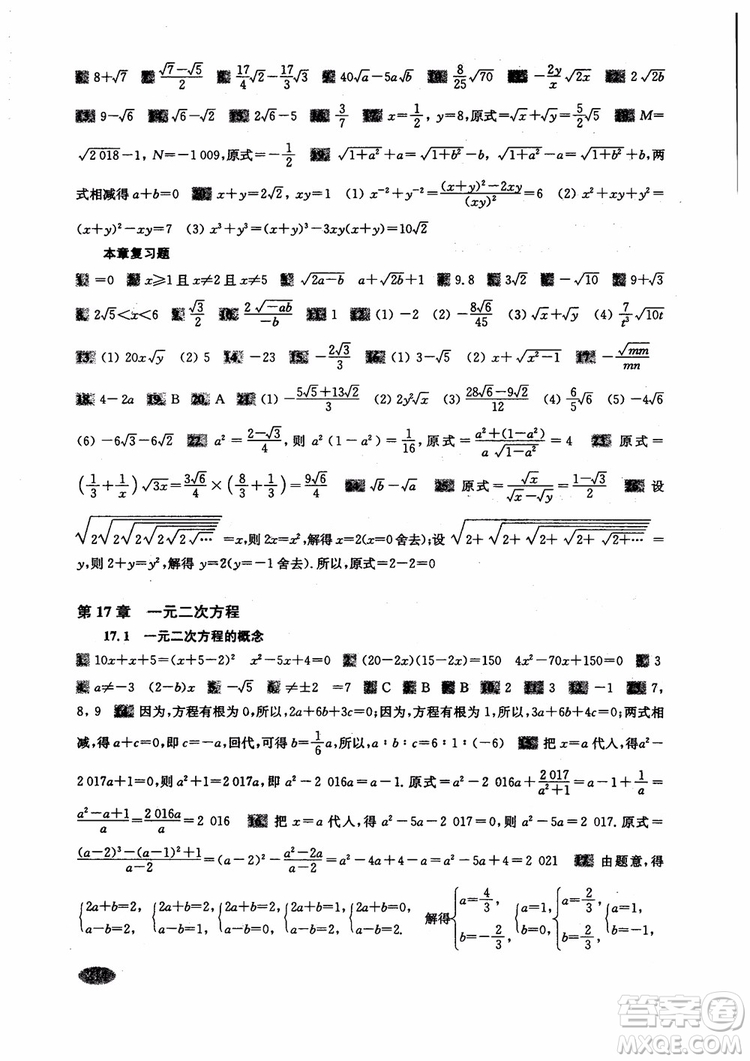 8+√7 (√7-√5)/2 17/4√2-17/3√3 40√a-5a√b 8/25√70 -2y/x√2x 2√2b
9-√2 √6-√2 2√6-5 3/7 x=1/2, y=8,原式=√x/2+√y=5/2√5 M=
√2 018-1, N=-1 009,原式=-1/2 √1+a²+a=√1+b²-b,√1+b²+b=√1+a²-a,两
式相减得a+b=0 x+y=2√2, xy=1 (1) x⁻²+y⁻²=((x+y)²-2xy)/(xy)²=6 (2) x²+xy+y²=
(x+y)²-xy=7 (3) x³+y³=(x+y)³-3xy(x+y)=10√2
本章复习题
=0 x≥1且x≠2且x≠5 √2a-b a+√2b+1 9.8 3√2 -√10 9+√3
2√5<x<6 √3/2 2√-ab/-b 1 (1) -2 (2) -8√6/45 (3) √x+√y (4) 7/t³√10t
(1) 20x√y (2) 5 -23 -2√3/3 (1) 3-√5 (2) x+√x²-1 -√mm/mn
4-2a B A (1) -(5√5+13√2)/3 (2) 2y²√x (3) (28√6-9√2)/12 (4) 6/5√6 (5) -4√6
(6) -6√3-6√2 a²=(2-√3)/4,则a²(1-a²)=1/16,原式=(a²+(1-a²))/(a√1-a²)=4 原式=
(1/3+1/x)√3x=3√6/4×(8/3+1/3)=9√6/4 √b-√a 原式=√x/(√x-√y)=(1-√3)/2 设
√2√2√2√2√2√…=x,则2x=x²,解得x=2(x=0舍去);设√2+√2+√2+√2+√2+√…=
y,则2+y=y²,解得y=2(y=-1舍去).所以,原式=2-2=0
第17章 一元二次方程
17.1 一元二次方程的概念
10x+x+5=(x+5)² x²-x-20=0 (20-2x)(15-2x)=150 4x²-70x+150=0 3
a≠-3 (2-b)x -√5 ≠±2 =7 C B B 2 3 -1 7,
8, 9 因为,方程有根为0,所以,2a+6b+3c=0;因为,方程有根为1,所以,3a+6b+4c=0;两式相
减,得a+c=0,即c=-a,回代,可得b=1/6a,所以,a:b:c=6:1:(-6) 把x=a代入,得a²-
2 017a+1=0,则a²+1=2 017a,即a²-2 016a=a-1.原式=a²-2 016a+2 017/(a²+1)=a-1+1/a=
(a²-a+1)/a=2 016a/a=2 016 把x=a代人,得a²-5a-2 017=0,即a²-5a=2 017.原式=
((a-2)³-(a-1)²+1)/(a-2)=(a-2)²-(a²-2a)/(a-2)=a²-4a+4-a=a²-5a+4=2 021 由题意,得
{2a+b=2, a-b=2, {2a+b=2, a-b=1, {2a+b=2, a-b=0, {2a+b=1, a-b=2, {2a+b=0, a-b=2. 解得{a=4/3, b=-2/3, {a=1, b=0, {a=2/3, b=2/3, {a=1, b=-1,
答案圈
MXQE.COM